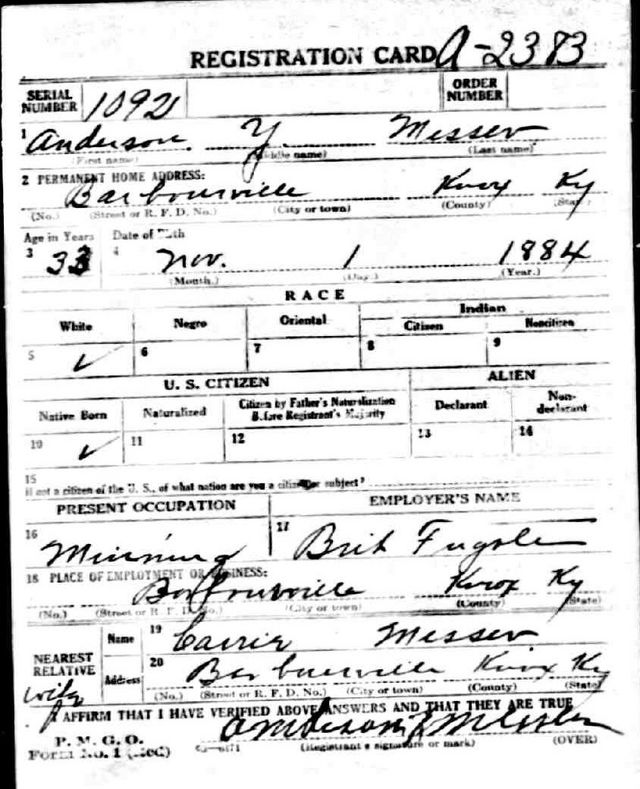 REGISTRATION CARD A-2383
SERIAL NUMBER 1092 ORDER NUMBER
1 Anderson Y. Messer
(First name) (Middle name) (Last name)
2 PERMANENT HOME ADDRESS:
Barbourville Knox Ky
(No.) (Street or R. F. D. No.) (City or town) (County) (State)
Age in Years Date of Birth
3 33 4 Nov. 1 1884
(Month.) (Day.) (Year.)
RACE
White Negro Oriental Indian
Citizen Noncitizen
5 ✓ 6 7 8 9
U. S. CITIZEN ALIEN
Native Born Naturalized Citizen by Father's Naturalization Before Registrant's Majority Declarant Non-declarant
10 ✓ 11 12 13 14
15
If not a citizen of the U. S., of what nation are you a citizen or subject?
PRESENT OCCUPATION EMPLOYER'S NAME
16 17
Minning Brit
18 PLACE OF EMPLOYMENT OR BUSINESS:
Barbourville Knox Ky
(No.) (Street or R. F. D. No.) (City or town) (County) (State)
NEAREST RELATIVE Name 19 Carrie Messer
wife Address 20 Barbourville Knox Ky
(No.) (Street or R. F. D. No.) (City or town) (County) (State)
I AFFIRM THAT I HAVE VERIFIED ABOVE ANSWERS AND THAT THEY ARE TRUE
P. M. G. O.
Form No. 1 (Red) Anderson Y Messer
(Registrant's signature or mark) (OVER)